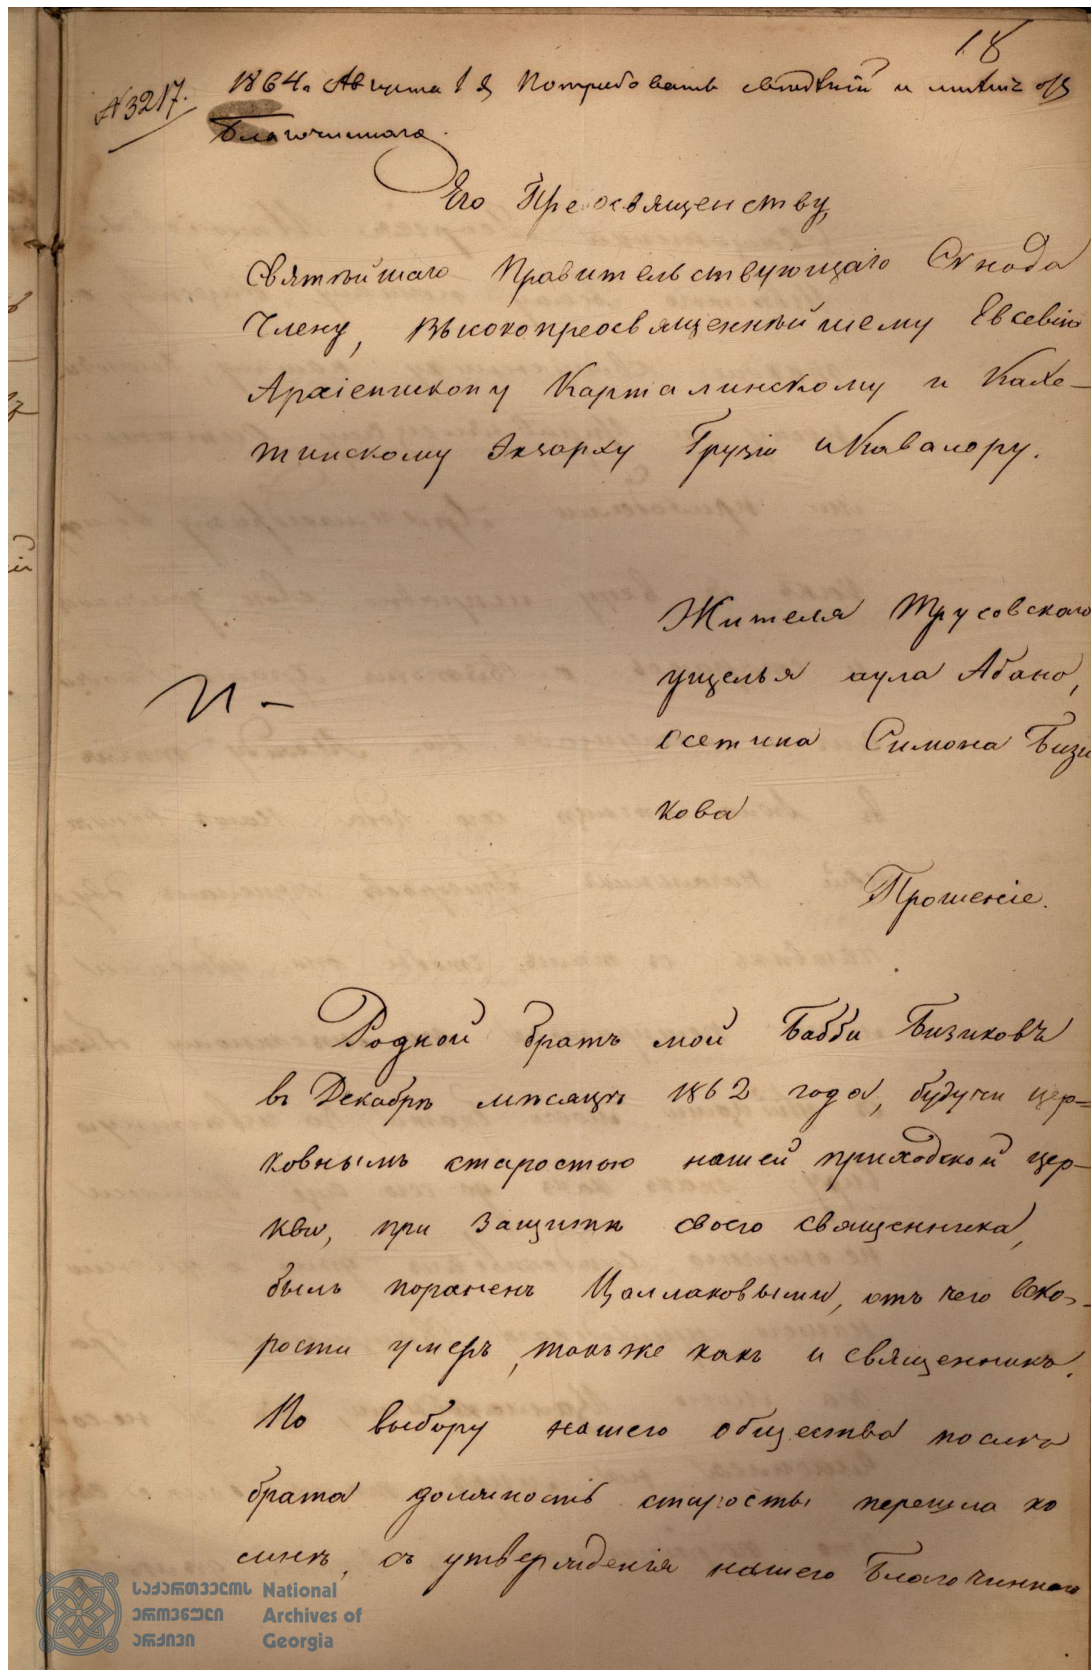 18
№ 3217.
1864. Августа 1 д Потребовать сведений и мнение отъ
Благочиннаго.
Его Преосвященству,
Святѣйшаго Правительствующаго Сѵнода
Члену, Высокопреосвященнѣйшему Евсевію
Архіепископу Карталинскому и Кахе-
тинскому Экзарху Грузіи и Кавалеру.
Жителя Трусовскаго
ущелья аула Абано,
Осетина Симона Бизи
кова
Прошеніе.
Родной братъ мой Бабби Бизиковъ
въ Декабрѣ мѣсяцѣ 1862 года, будучи цер=
ковнымъ старостою нашей приходской цер-
кви, при защитѣ своего священника,
былъ пораненъ Цаллаковыми, отъ чего вско-
рости умеръ, такъ же какъ и священникъ.
По выбору нашего общества послѣ
брата должность старосты перешла ко
мнѣ, съ утвержденія нашего Благочиннаго
საქართველოს National
ეროვნული Archives of
არქივი Georgia